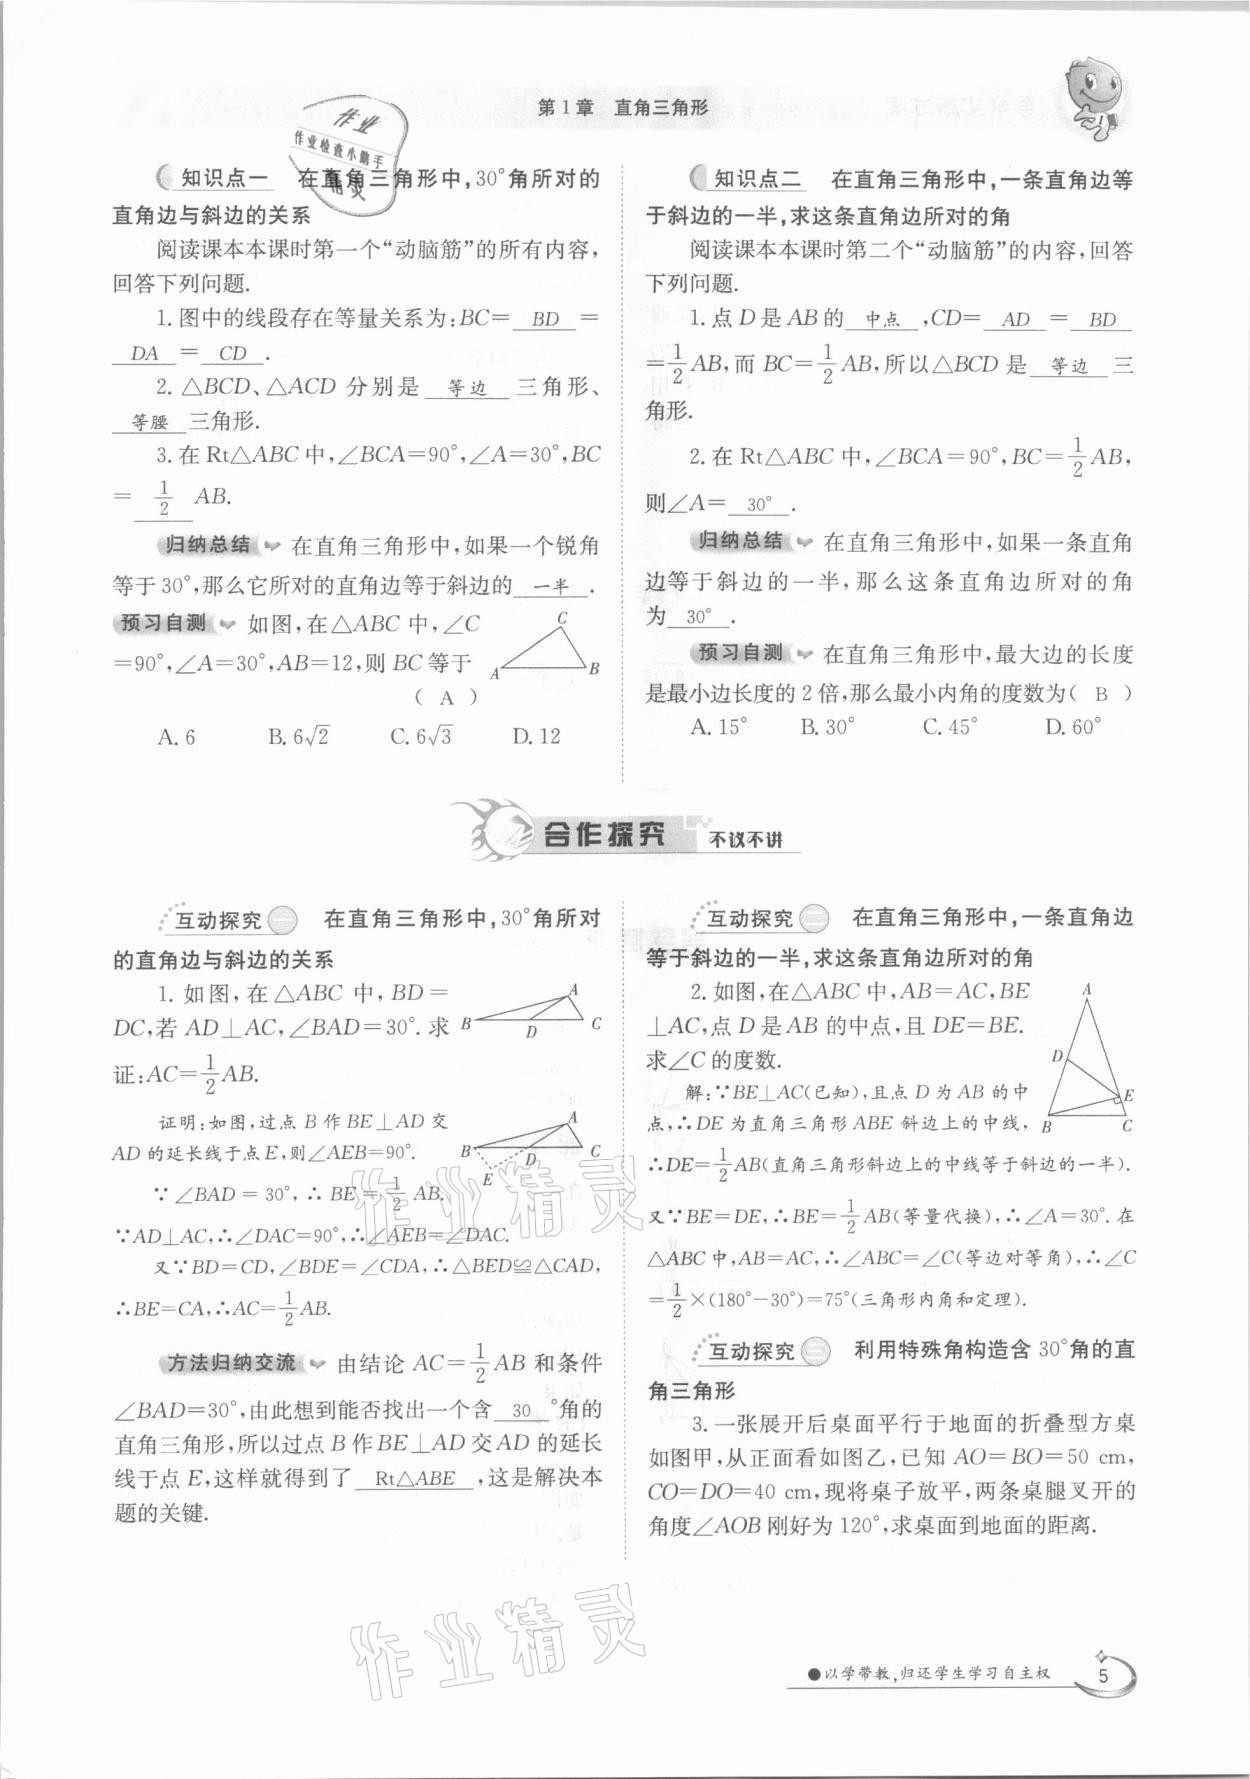 第1章 直角三角形
作业
作业检查小助手
精灵
知识点一 在直角三角形中,30°角所对的
直角边与斜边的关系
阅读课本本课时第一个“动脑筋”的所有内容,
回答下列问题.
1.图中的线段存在等量关系为:BC= BD =
DA = CD .
2.△BCD、△ACD 分别是 等边 三角形、
等腰 三角形.
3.在 Rt△ABC 中,∠BCA=90°,∠A=30°,BC
= 1/2 AB.
归纳总结 在直角三角形中,如果一个锐角
等于30°,那么它所对的直角边等于斜边的 一半 .
预习自测 如图,在△ABC 中,∠C
=90°,∠A=30°,AB=12,则 BC 等于
( A )
A C B
A.6 B.6√2 C.6√3 D.12
知识点二 在直角三角形中,一条直角边等
于斜边的一半,求这条直角边所对的角
阅读课本本课时第二个“动脑筋”的内容,回答
下列问题.
1.点 D 是 AB 的 中点 ,CD= AD = BD
=1/2AB,而 BC=1/2AB,所以△BCD 是 等边 三
角形.
2.在 Rt△ABC 中,∠BCA=90°,BC=1/2AB,
则∠A= 30° .
归纳总结 在直角三角形中,如果一条直角
边等于斜边的一半,那么这条直角边所对的角
为 30° .
预习自测 在直角三角形中,最大边的长度
是最小边长度的 2 倍,那么最小内角的度数为( B )
A.15° B.30° C.45° D.60°
合作探究 不议不讲
互动探究一 在直角三角形中,30°角所对
的直角边与斜边的关系
1.如图,在△ABC 中,BD=
DC,若 AD⊥AC,∠BAD=30°.求
证:AC=1/2AB.
A B D C
证明:如图,过点 B 作 BE⊥AD 交
AD 的延长线于点 E,则∠AEB=90°.
A B D C E
∵∠BAD=30°,∴BE=1/2AB.
∵AD⊥AC,∴∠DAC=90°,∴∠AEB=∠DAC.
又∵BD=CD,∠BDE=∠CDA,∴△BED≌△CAD,
∴BE=CA,∴AC=1/2AB.
方法归纳交流 由结论 AC=1/2AB 和条件
∠BAD=30°,由此想到能否找出一个含 30 °角的
直角三角形,所以过点 B 作 BE⊥AD 交 AD 的延长
线于点 E,这样就得到了 Rt△ABE ,这是解决本
题的关键.
互动探究二 在直角三角形中,一条直角边
等于斜边的一半,求这条直角边所对的角
2.如图,在△ABC 中,AB=AC,BE
⊥AC,点 D 是 AB 的中点,且 DE=BE.
求∠C 的度数.
A D E B C
解:∵BE⊥AC(已知),且点 D 为 AB 的中
点,∴DE 为直角三角形 ABE 斜边上的中线,
∴DE=1/2AB(直角三角形斜边上的中线等于斜边的一半).
又∵BE=DE,∴BE=1/2AB(等量代换),∴∠A=30°.在
△ABC 中,AB=AC,∴∠ABC=∠C(等边对等角),∴∠C
=1/2×(180°-30°)=75°(三角形内角和定理).
互动探究三 利用特殊角构造含 30°角的直
角三角形
3.一张展开后桌面平行于地面的折叠型方桌
如图甲,从正面看如图乙,已知 AO=BO=50 cm,
CO=DO=40 cm,现将桌子放平,两条桌腿叉开的
角度∠AOB 刚好为 120°,求桌面到地面的距离.
作业精灵
作业精灵
●以学带教,归还学生学习自主权
5